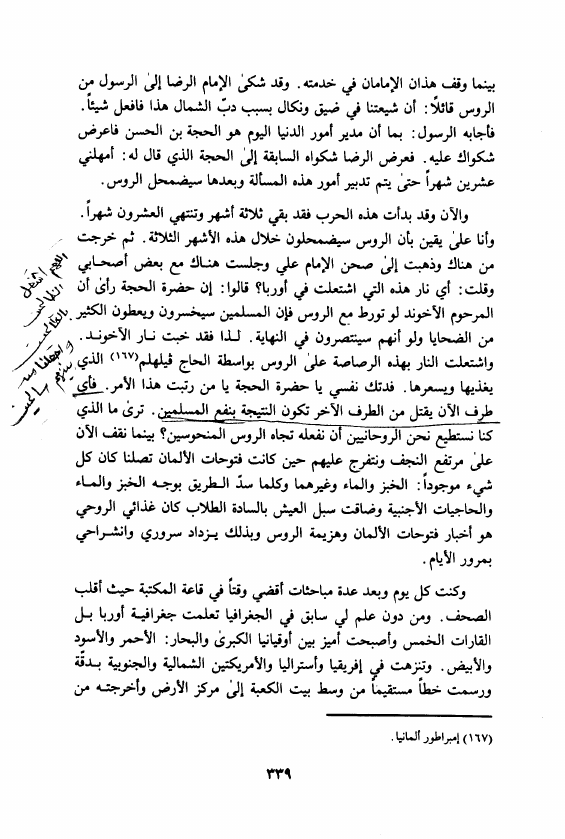 بينما وقف هذان الإمامان في خدمته. وقد شكىٰ الإمام الرضا إلىٰ الرسول من
الروس قائلاً: أن شيعتنا في ضيق ونكال بسبب دبّ الشمال هذا فافعل شيئاً.
فأجابه الرسول: بما أن مدير أمور الدنيا اليوم هو الحجة بن الحسن فاعرض
شكواك عليه. فعرض الرضا شكواه السابقة إلىٰ الحجة الذي قال له: أمهلني
عشرين شهراً حتىٰ يتم تدبير أمور هذه المسألة وبعدها سيضمحل الروس.
والآن وقد بدأت هذه الحرب فقد بقي ثلاثة أشهر وتنتهي العشرون شهراً.
وأنا علىٰ يقين بأن الروس سيضمحلون خلال هذه الأشهر الثلاثة. ثم خرجت
من هناك وذهبت إلىٰ صحن الإمام علي وجلست هناك مع بعض أصحابي
وقلت: أي نار هذه التي اشتعلت في أوربا؟ قالوا: إن حضرة الحجة رأىٰ أن
المرحوم الآخوند لو تورط مع الروس فإن المسلمين سيخسرون ويعطون الكثير
من الضحايا ولو أنهم سينتصرون في النهاية. لذا فقد خبت نار الآخوند.
واشتعلت النار بهذه الرصاصة علىٰ الروس بواسطة الحاج ڤيلهلم(١٦٧) الذي
يغذيها ويسعرها. فدتك نفسي يا حضرة الحجة يا من رتبت هذا الأمر. فأي
طرف الآن يقتل من الطرف الآخر تكون النتيجة بنفع المسلمين. ترىٰ ما الذي
كنا نستطيع نحن الروحانيين أن نفعله تجاه الروس المنحوسين؟ بينما نقف الآن
علىٰ مرتفع النجف ونتفرج عليهم حين كانت فتوحات الألمان تصلنا كان كل
شيء موجوداً: الخبز والماء وغيرهما وكلما سدّ الطريق بوجه الخبز والماء
والحاجيات الأجنبية وضاقت سبل العيش بالسادة الطلاب كان غذائي الروحي
هو أخبار فتوحات الألمان وهزيمة الروس وبذلك يزداد سروري وانشراحي
بمرور الأيام.
وكنت كل يوم وبعد عدة مباحثات أقضي وقتاً في قاعة المكتبة حيث أقلب
الصحف. ومن دون علم لي سابق في الجغرافيا تعلمت جغرافية أوربا بل
القارات الخمس وأصبحت أميز بين أوقيانيا الكبرىٰ والبحار: الأحمر والأسود
والأبيض. وتنزهت في إفريقيا وأستراليا والأمريكتين الشمالية والجنوبية بدقّة
ورسمت خطاً مستقيماً من وسط بيت الكعبة إلىٰ مركز الأرض وأخرجته من
(١٦٧) إمبراطور ألمانيا.
٣٣٩